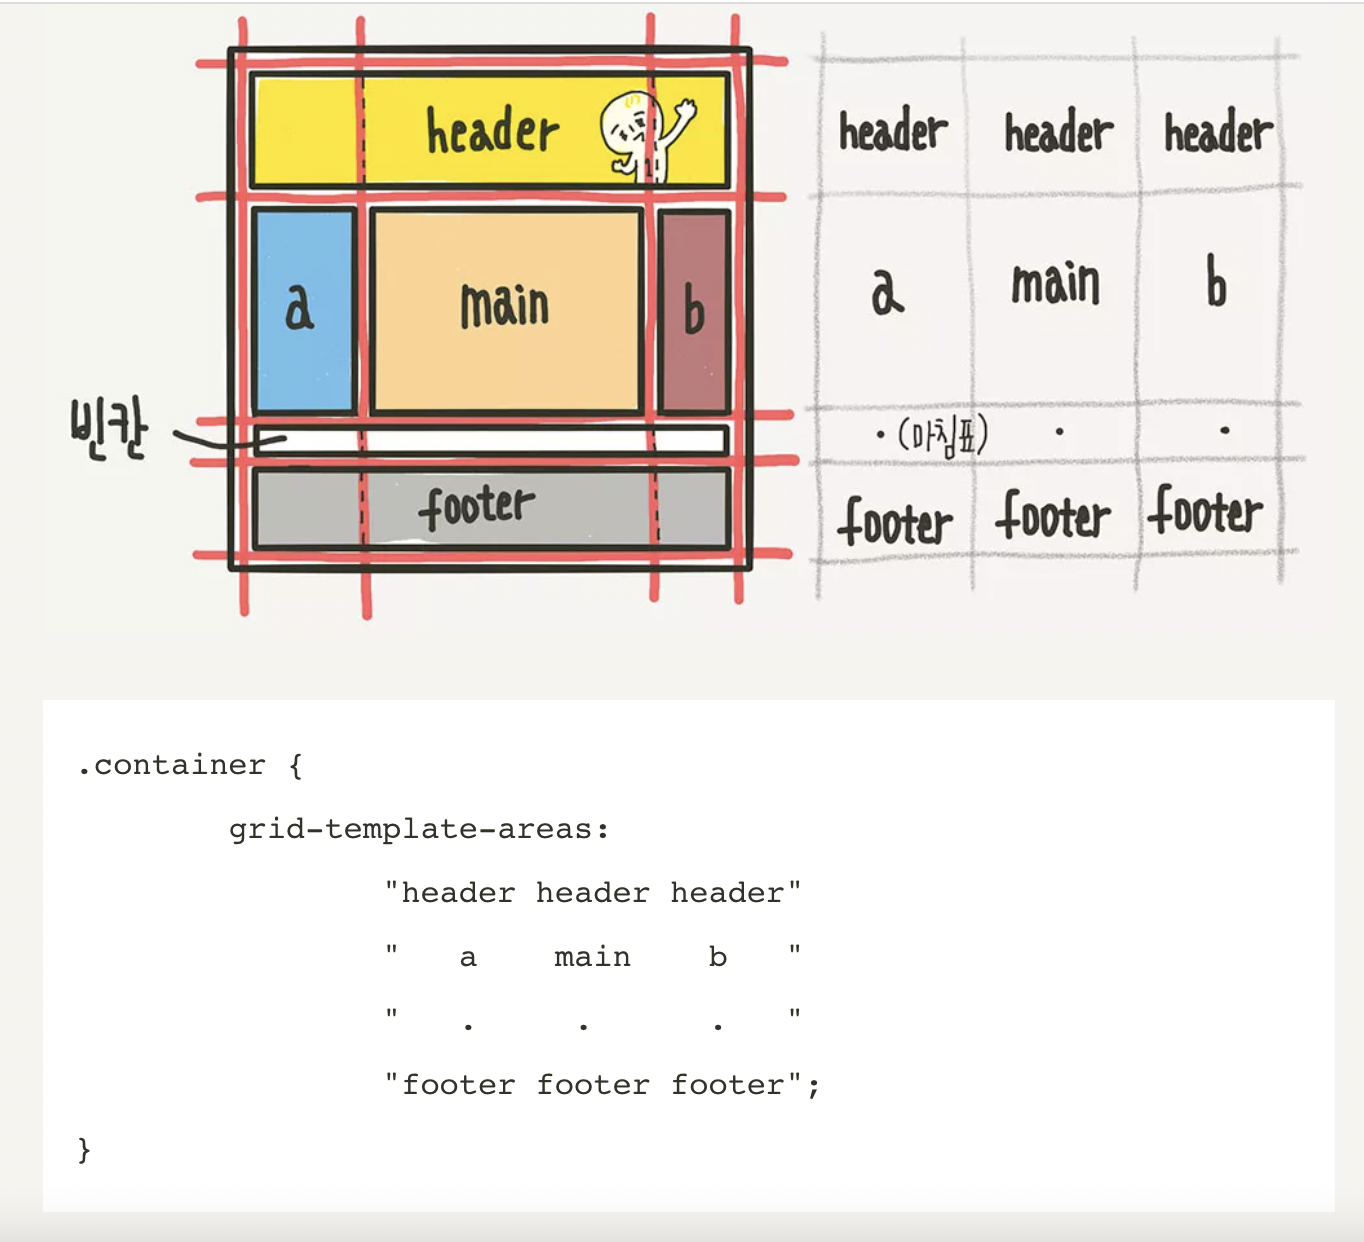 header
a main b
빈칸
footer
header header header
a main b
. (마침표) . .
footer footer footer
.container {
grid-template-areas:
"header header header"
" a main b "
" . . . "
"footer footer footer";
}